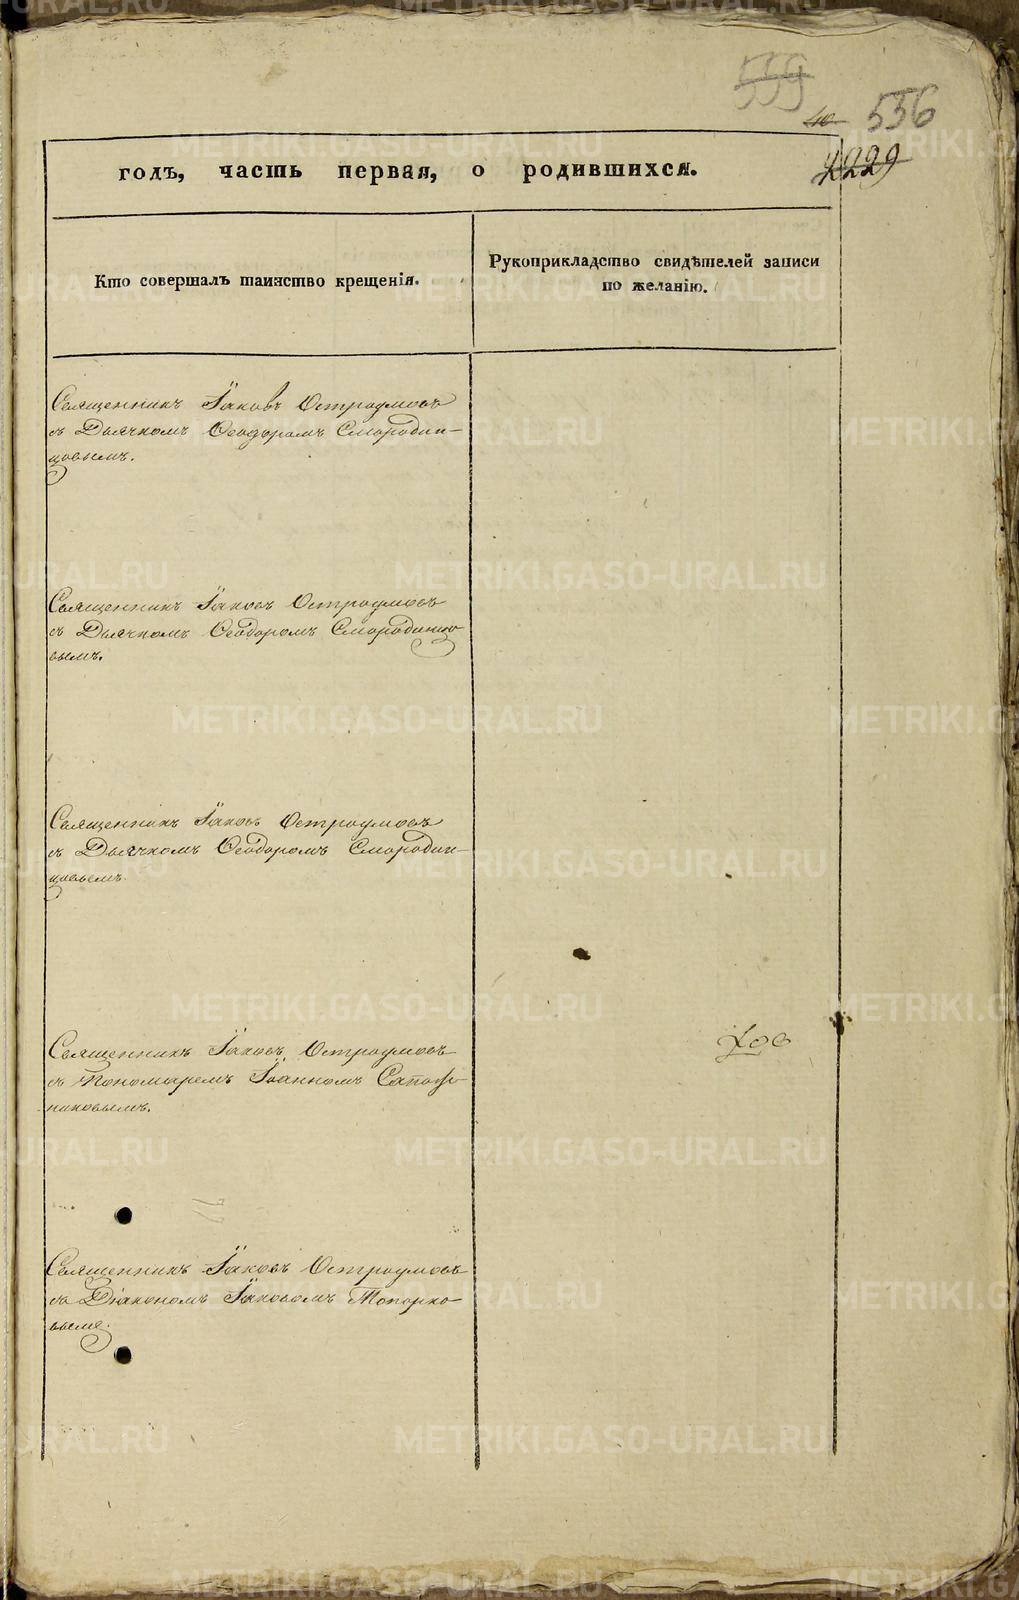 559
556
2229
годъ, часть первая, о родившихся.
Кто совершалъ таинство крещенія.
Рукоприкладство свидѣтелей записи
по желанію.
Священникъ Іаковъ Остроумовъ
съ Дьячкомъ Ѳеодоромъ Смородин-
цовымъ.
Священникъ Іаковъ Остроумовъ
съ Дьячкомъ Ѳеодоромъ Смородинцо
вымъ.
Священникъ Іаковъ Остроумовъ
съ Дьячкомъ Ѳеодоромъ Смородин-
цовымъ.
Священникъ Іаковъ Остроумовъ
съ Пономаремъ Іоанномъ Сапож-
никовымъ.
Священникъ Іаковъ Остроумовъ
съ Діакономъ Іаковомъ Топорко
вымъ.
METRIKI.GASO-URAL.RU